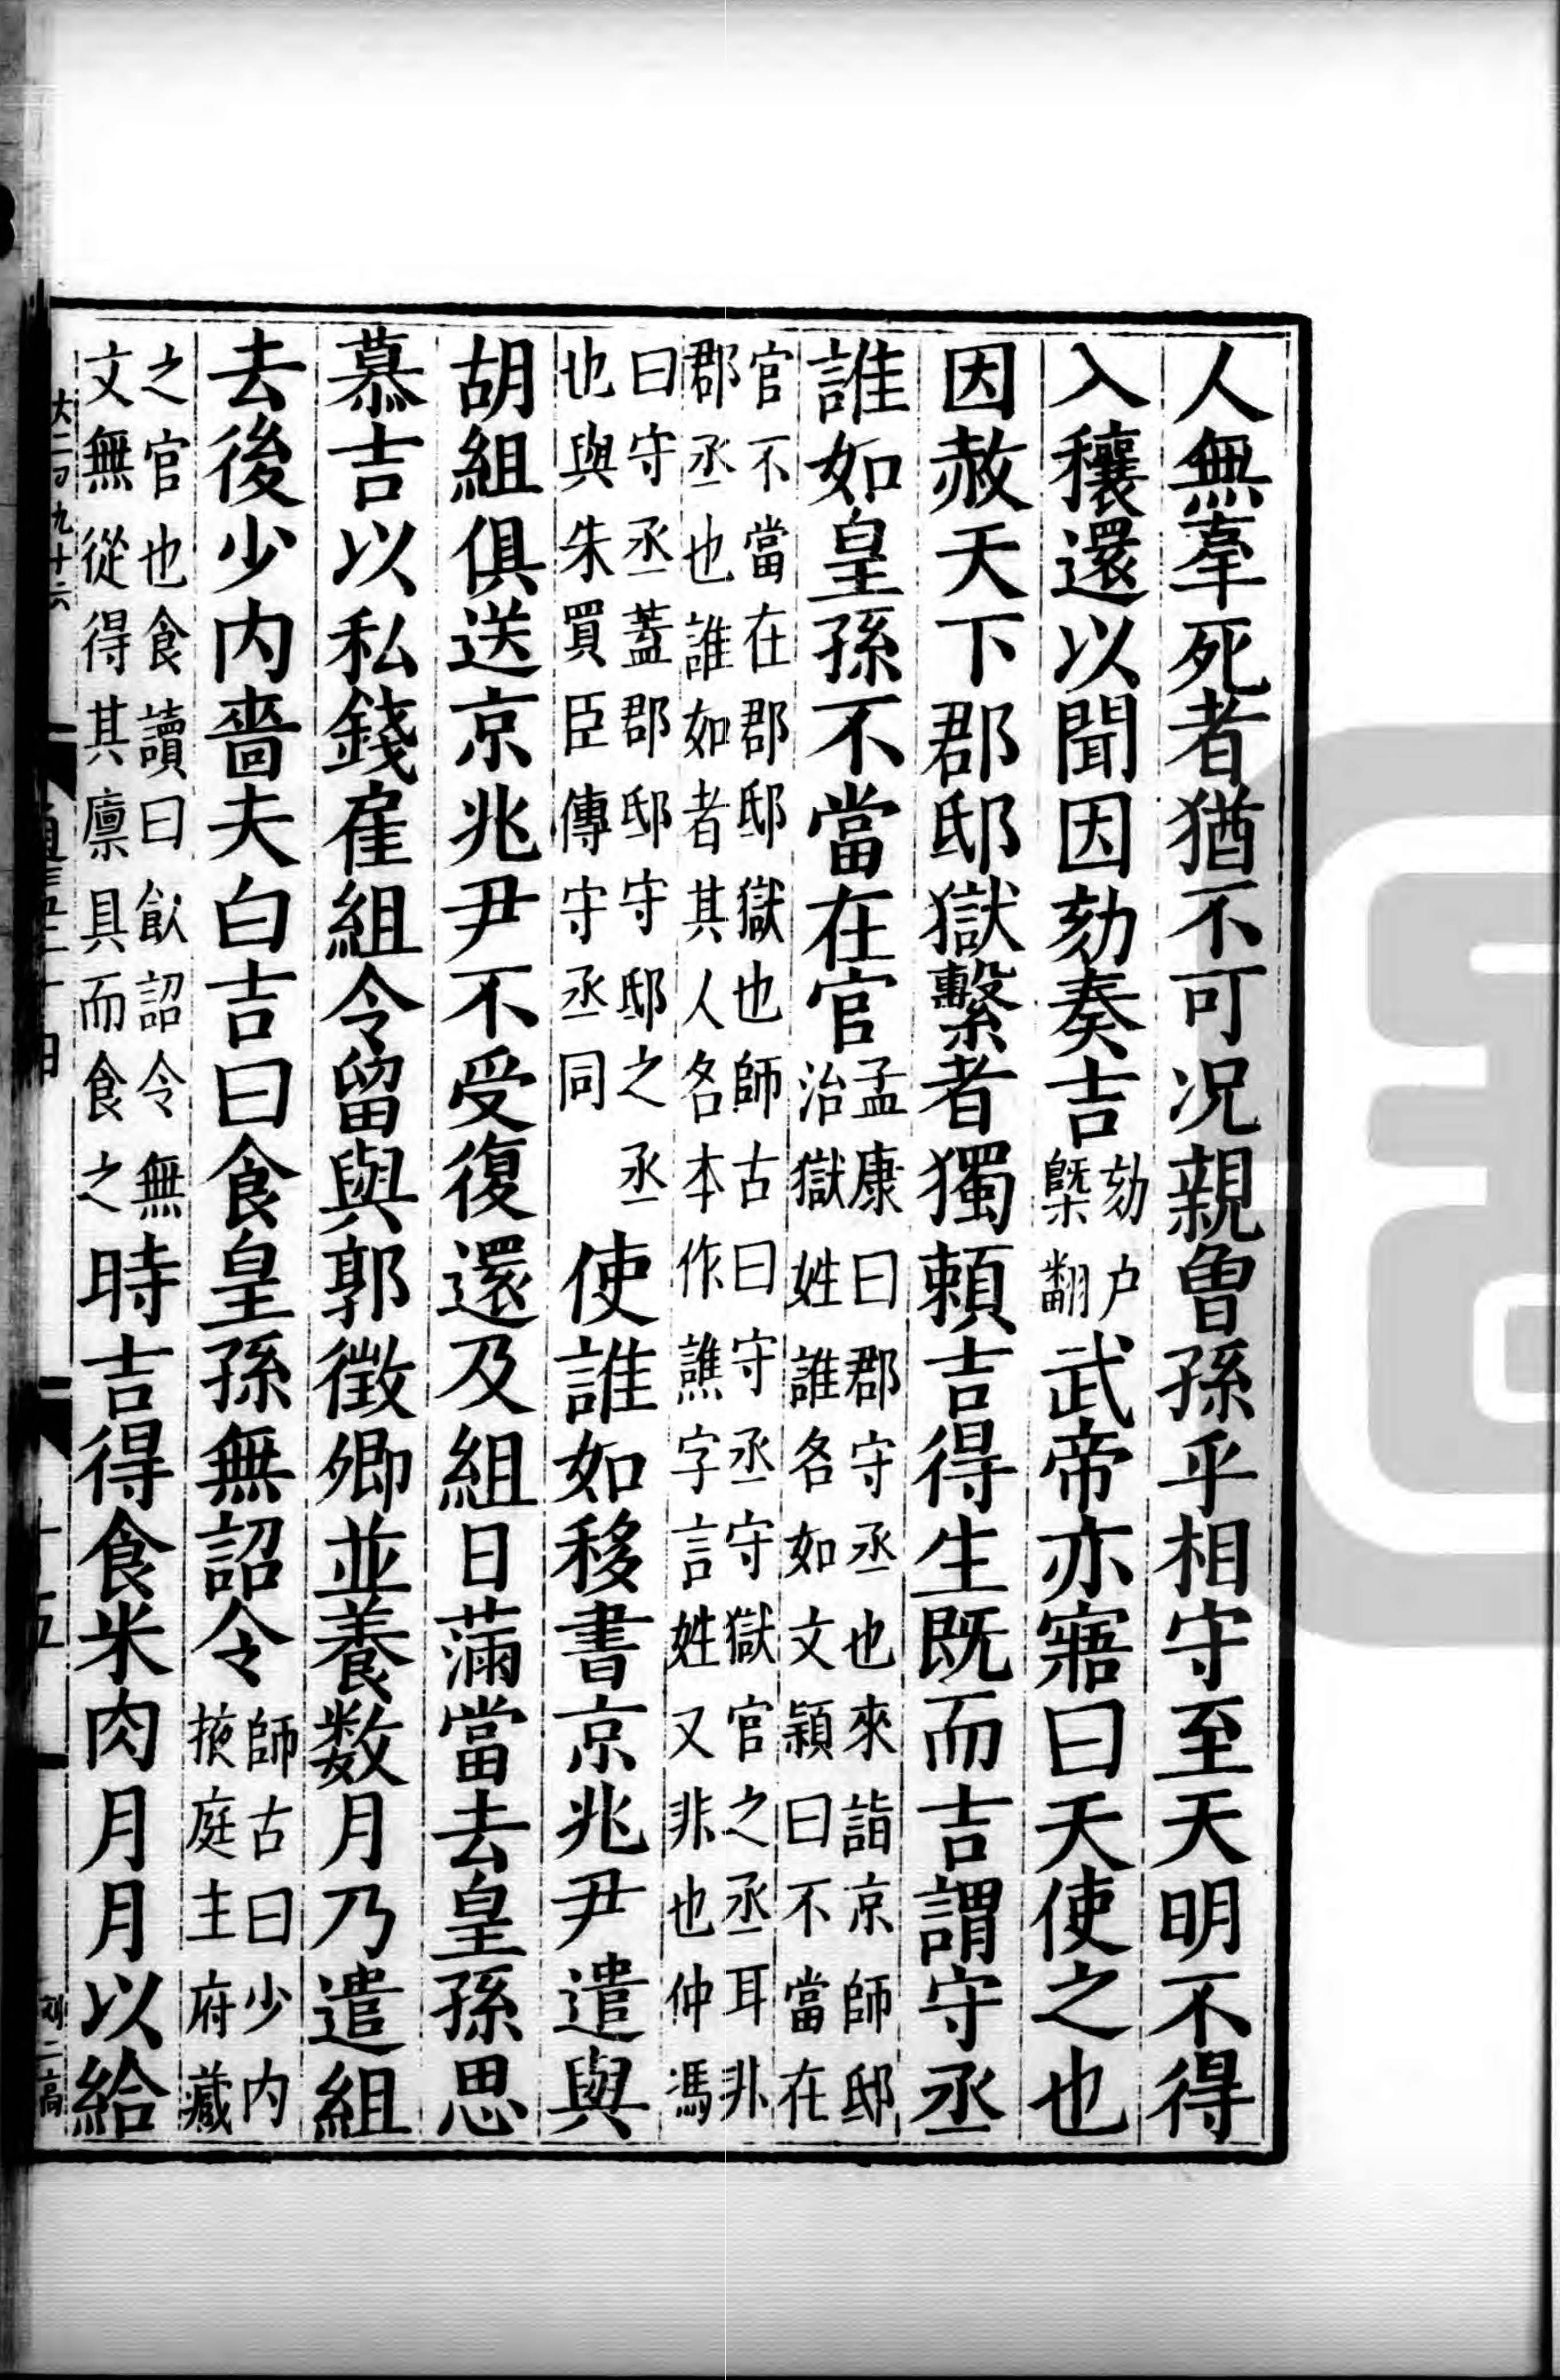 人無辜死者猶不可况親曾孫乎相守至天明不得
入穰還以聞因劾奏吉劾戶槩翻武帝亦寤曰天使之也
因赦天下郡邸獄繫者獨賴吉得生既而吉謂守丞
誰如皇孫不當在官孟康曰郡守丞也來詣京師邸治獄姓誰名如文穎曰不當在
官不當在郡邸獄也師古曰守丞守獄官之丞耳非郡丞也誰如者其人名本作譙字言姓又非也仲馮
曰守丞蓋郡邸守邸之丞也與朱買臣傳守丞同使誰如移書京兆尹遣與
胡組俱送京兆尹不受復還及組日滿當去皇孫思
慕吉以私錢雇組令留與郭徵卿並養数月乃遣組
去後少内嗇夫白吉曰食皇孫無詔令師古曰少内掖庭主府藏
之官也食讀曰飤詔令無文無從得其廩具而食之時吉得食米肉月月以給